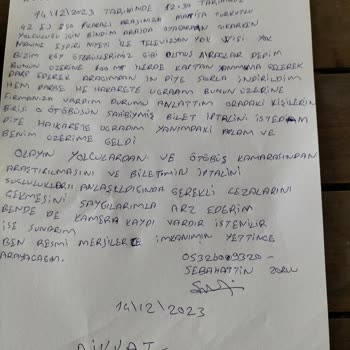 14/12/2023 TARİHİNDE 12.30 TARİHİNDE
42 EJ 250 PLAKALI ARASINIZA MANİSA TURGUTLU
YOLCULUĞU İÇİN BİNDİM ARAJDA OTURARAK ÇIKARKEN
MAVİNE ESPİRİ NİYETİ İLE TELEVİZYON YOK ŞEYİSİ YOK
BİZİM KÖY OTOBÜSLERİMİZ GİBİ OLMUŞ ARAÇLAR DEDİM
BUNUN ÜZERİNE 100 MT İLERDE KAPTAN YANIMA GELEREK
DARP EDEREK ARAÇIMDAN İN DİYE ZORLA İNDİRİLDİM
HEM DARBE HE HAKARETE UĞRADIM BUNUN ÜZERİNE
FİRMANIZA VARDIM DURUMU ANLATTIM ORADAKİ KİŞİLERİN
BİRİSİ O OTOBÜSÜN SAHİBİYMİŞ BİLET İPTALİNİ İSTEDİM
DİYE HAKARETE UĞRADIM YANIMDAKİ ADAM VE
BENİM ÜZERİME GELDİ
OLAYIN YOLCULARDAN VE OTOBÜS KAMARASINDAN
ARAŞTIRILMASINI VE BİLETİMİN İPTALİNİ
SUÇLULUKLARI ANLAŞILDIĞINDA GEREKLİ CEZALARINI
ÇEKMESİNİ SAYGILARIMLA ARZ EDERİM
BENDE DE KAMERA KAYDI VARDIR İSTENİLİR
İSE SUNARIM
BEN RESMİ MERSİLERE İMKANIMIN YETTİNCE
ARAYACAĞIM.
05326009320-
SEBAHATTİN ZORLU
14/12/2023
DİKKAT